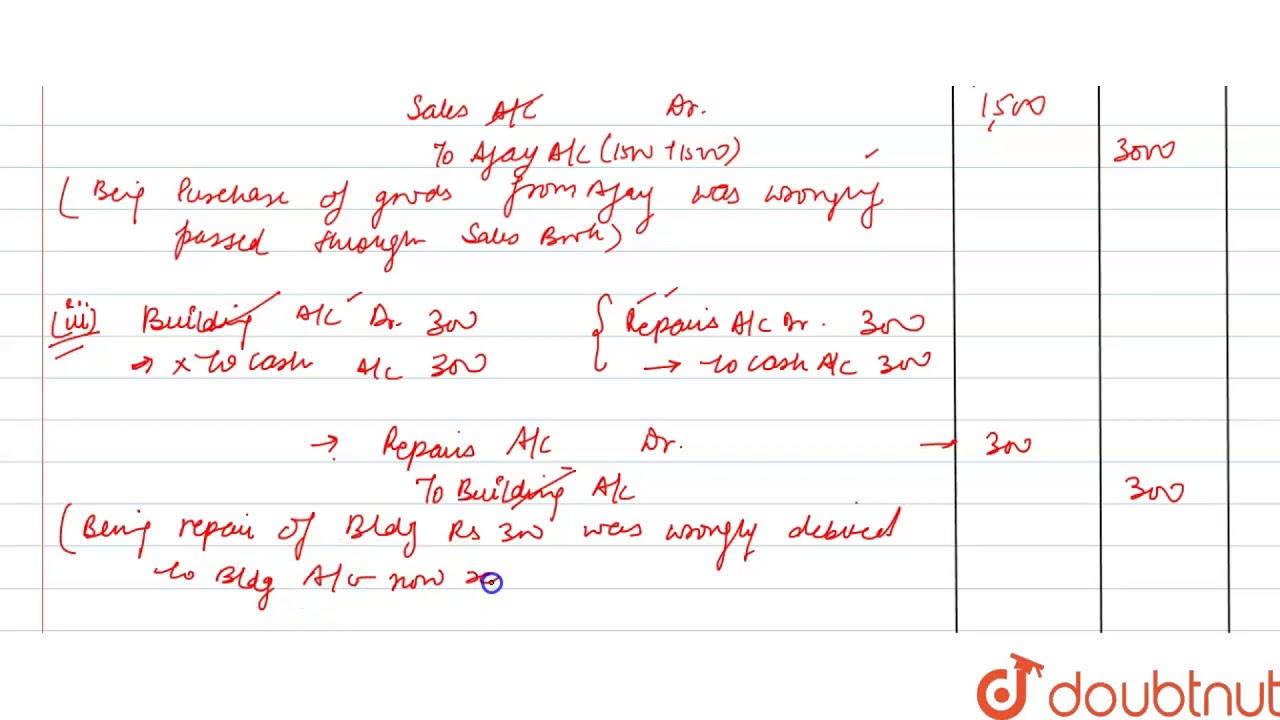 Sales A/c Dr. 1,500
To Ajay A/c (1500+1500) 3000
(Being Purchase of goods from Ajay was wrongly
passed through Sales Book)
(iii) Building A/c Dr. 300 { Repairs A/c Dr. 300
→ x To cash A/c 300 → To cash A/c 300
→ Repairs A/c Dr. → 300
To Building A/c 300
(Being repair of Bldg Rs 300 was wrongly debited
to Bldg A/c now
doubtnut